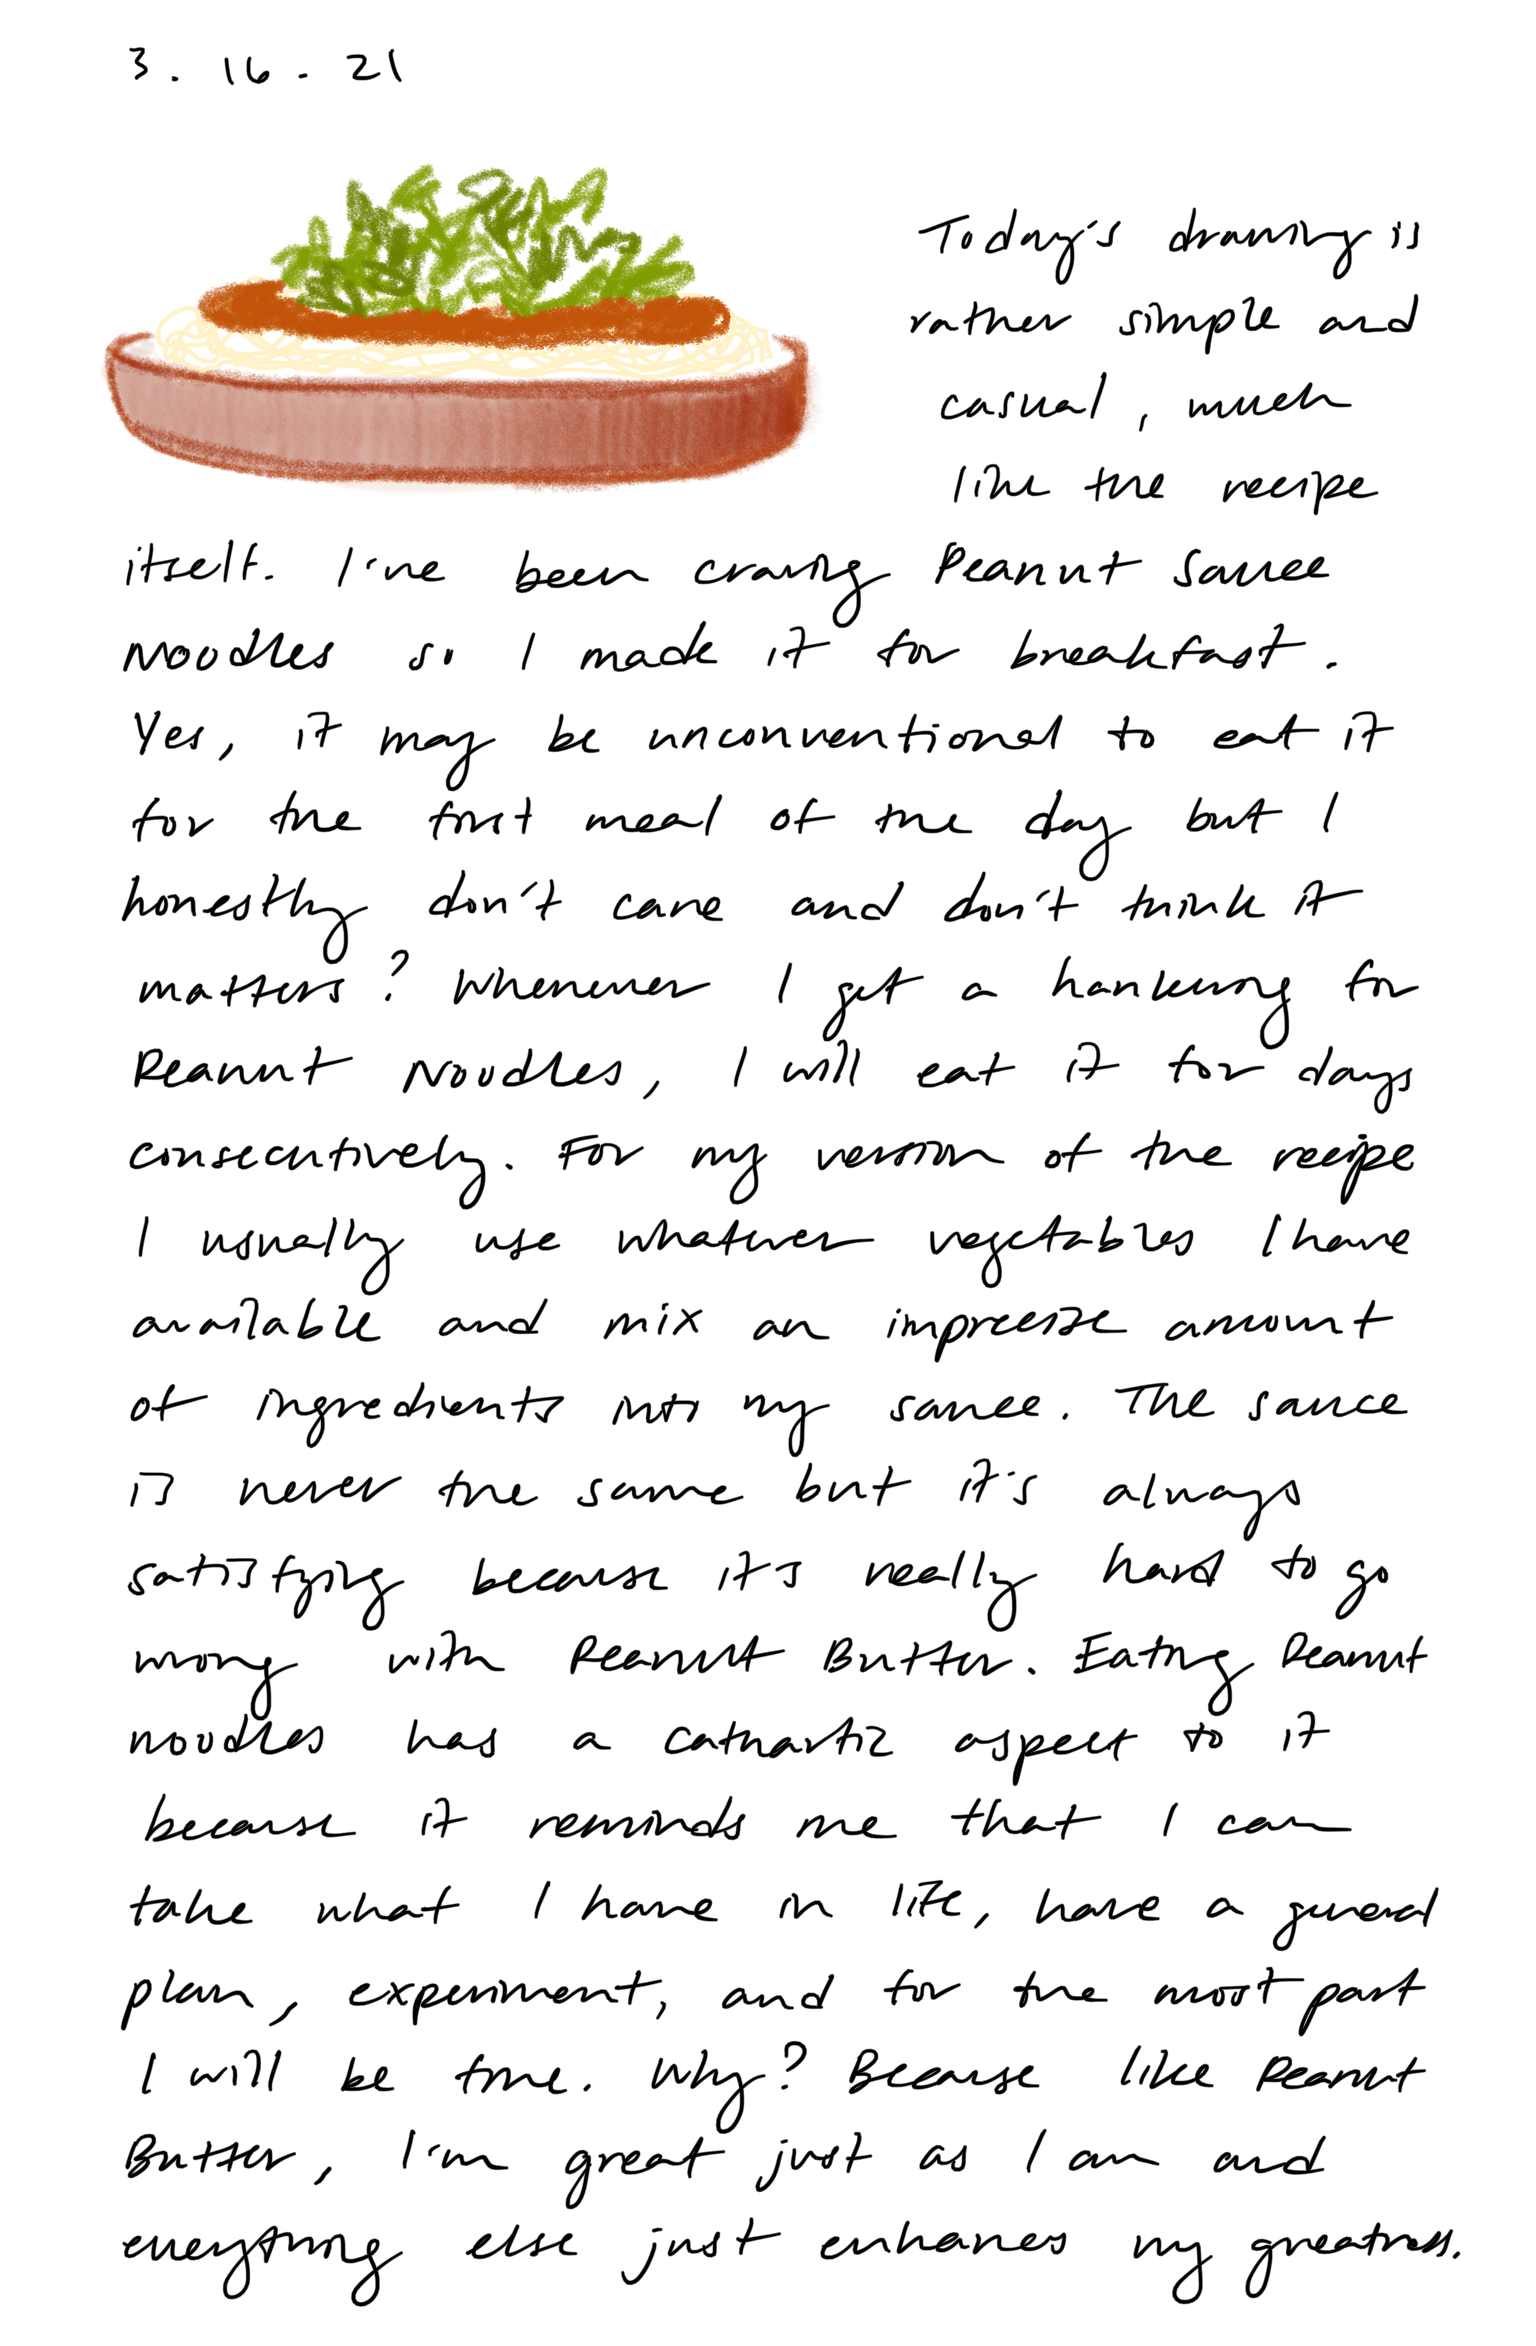 3. 16. 21
Today's drawing is
rather simple and
casual, much
like the recipe
itself. I've been craving Peanut Sauce
Noodles so I made it for breakfast.
Yes, it may be unconventional to eat it
for the first meal of the day but I
honestly don't care and don't think it
matters? Whenever I get a hankering for
Peanut Noodles, I will eat it for days
consecutively. For my version of the recipe
I usually use whatever vegetables I have
available and mix an imprecise amount
of ingredients into my sauce. The sauce
is never the same but it's always
satisfying because it's really hard to go
wrong with Peanut Butter. Eating Peanut
noodles has a cathartic aspect to it
because it reminds me that I can
take what I have in life, have a general
plan, experiment, and for the most part
I will be fine. Why? Because like Peanut
Butter, I'm great just as I am and
everything else just enhances my greatness.